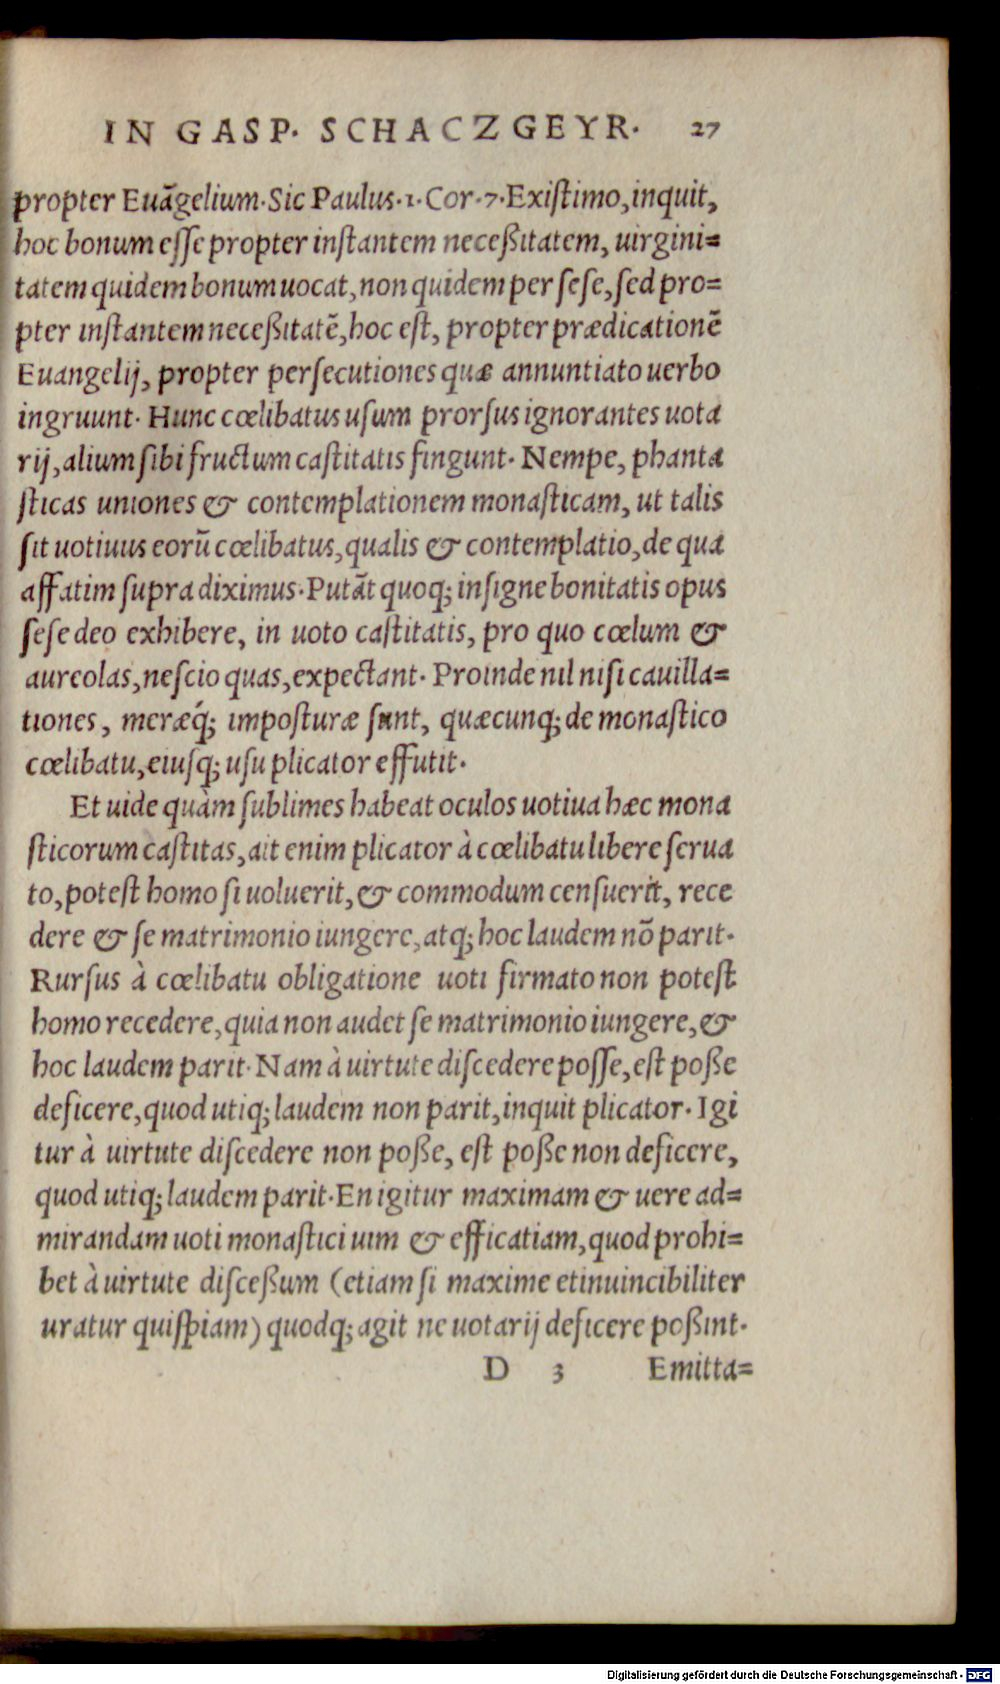 IN GASP. SCHACZGEYR. 27
propter Euãgelium. Sic Paulus. 1. Cor. 7. Existimo, inquit,
hoc bonum esse propter instantem neceßitatem, uirgini=
tatem quidem bonum uocat, non quidem per sese, sed pro=
pter instantem neceßitatē, hoc est, propter prædicationē
Euangelij, propter persecutiones quæ annuntiato uerbo
ingruunt. Hunc cœlibatus usum prorsus ignorantes uota
rij, alium sibi fructum castitatis fingunt. Nempe, phanta
sticas uniones & contemplationem monasticam, ut talis
sit uotiuus eorũ cœlibatus, qualis & contemplatio, de qua
affatim supra diximus. Putãt quoq; insigne bonitatis opus
sese deo exhibere, in uoto castitatis, pro quo cœlum &
aureolas, nescio quas, expectant. Proinde nil nisi cauilla=
tiones, meræq́; imposturæ sunt, quæcunq; de monastico
cœlibatu, eiusq; usu plicator effutit.
Et uide quàm sublimes habeat oculos uotiua hæc mona
sticorum castitas, ait enim plicator à cœlibatu libere serua
to, potest homo si uoluerit, & commodum censuerit, rece
dere & se matrimonio iungere, atq; hoc laudem nõ parit.
Rursus à cœlibatu obligatione uoti firmato non potest
homo recedere, quia non audet se matrimonio iungere, &
hoc laudem parit. Nam à uirtute discedere posse, est poße
deficere, quod utiq; laudem non parit, inquit plicator. Igi
tur à uirtute discedere non poße, est poße non deficere,
quod utiq; laudem parit. En igitur maximam & uere ad=
mirandam uoti monastici uim & efficatiam, quod prohi=
bet à uirtute disceßum (etiam si maxime et inuincibiliter
uratur quispiam) quodq; agit ne uotarij deficere poßint.
D 3 Emitta=
Digitalisierung gefördert durch die Deutsche Forschungsgemeinschaft - DFG